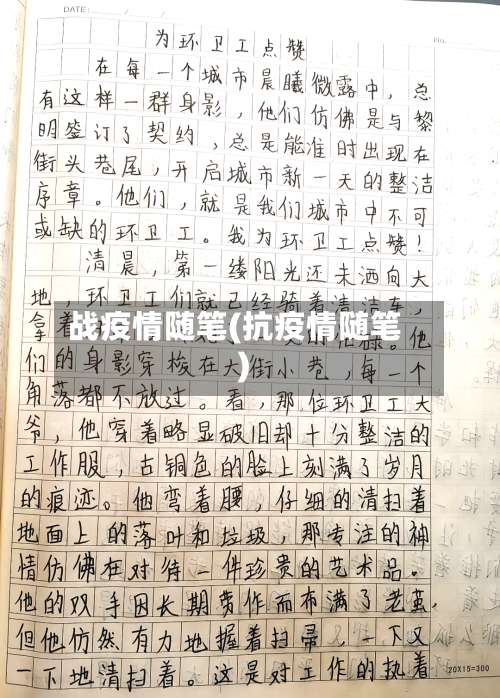 DATE:
No.
为环卫工点赞
在每一个城市晨曦微露中，总
有这样一群身影，他们仿佛是与黎
明签订了契约，总是能准时出现在
街头巷尾，开启城市新一天的整洁
序章。他们，就是我们城市中不可
或缺的环卫工。我为环卫工点赞！
清晨，第一缕阳光还未洒向大
地，环卫工们就已经骑着清洁车，
拿着
他
战疫情随笔(抗疫情随笔
)
们的身影穿梭在大街小巷，每一个
角落都不放过。看，那位环卫工大
爷，他穿着略显破旧却十分整洁的
工作服，古铜色的脸上刻满了岁月
的痕迹。他弯着腰，仔细的清扫着
地面上的落叶和垃圾，那专注的神
情仿佛在对待一件珍贵的艺术品。
他的双手因长期劳作而布满了老茧，
但他仿然有力地握着扫帚，一下又
一下地清扫着。这是对工作的执着
20X15=300